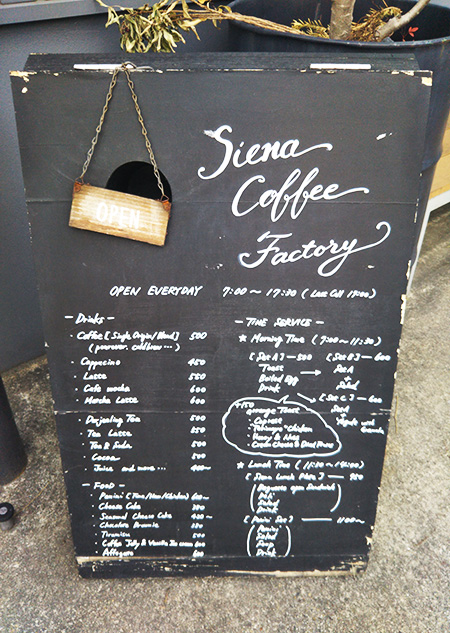 OPEN
Siena
Coffee
Factory
OPEN EVERYDAY 7:00~17:30 (Last Call 17:00)
- Drinks -
・Coffee [Single Origin/Blend] 500
(pourover, coldbrew ...)
・Cappuccino 450
・Latte 550
・Cafe mocha 600
・Matcha Latte 600
・Darjeeling Tea 500
・Tea Latte 550
・Tea & Soda 500
・Cocoa 500
・Juice and more ... 400~
- FOOD -
・Panini
・Cheese Cake
・Seasonal Cheese Cake 400~
・Chocolate Brownie
・Tiramisu 500
・Coffee Jelly & Vanilla Ice cream 600
・Affogato 600
- TIME SERVICE -
★ Morning Time (7:00~11:30)
[Set A] — 500 [Set B] — 600
Toast → Set A
Boiled Egg +
Drink Salad
[Set C] — 600
Set A
+
Yogurt with Granola
+150
arrange Toast
・Caprese
・Teriyaki Chicken
・Honey & Nuts
・Cream Cheese & Dried Fruits
★ Lunch Time (11:30~14:00)
[Siena Lunch Plate] —
Salad
Drink
[Panini Set] — 1100~
Panini
Salad
Soup
Drink